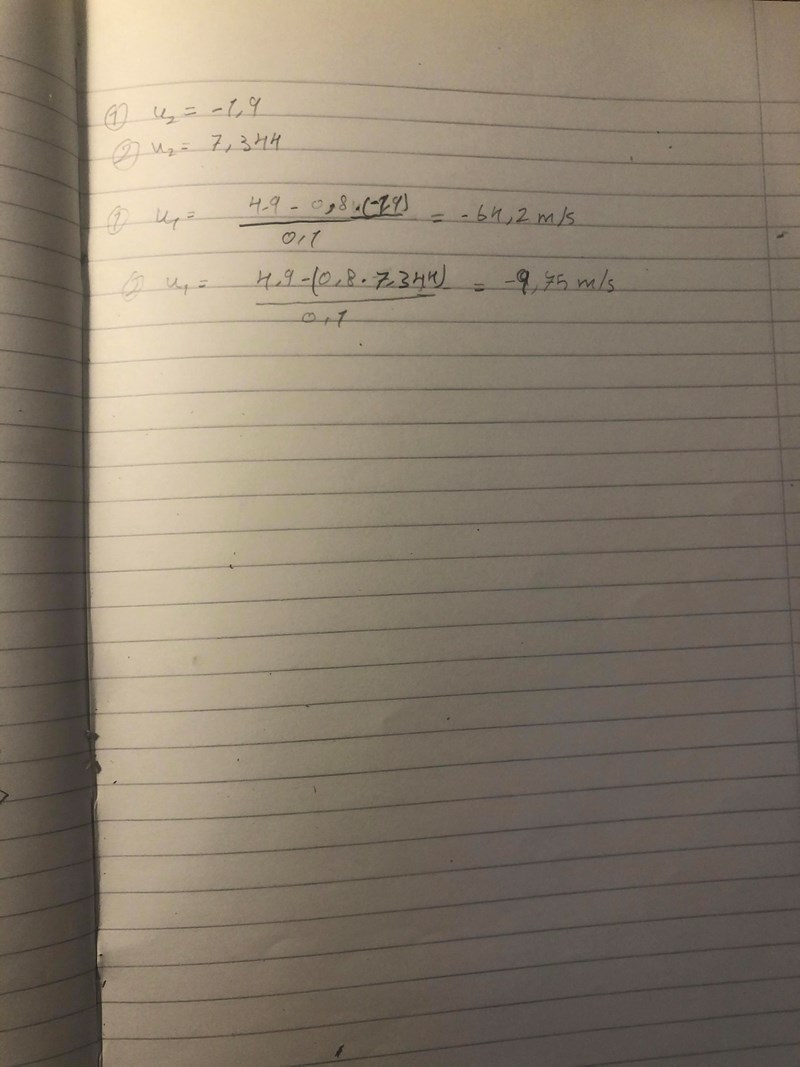 ① u₂ = -1,9
② u₂ = 7,344
① u₁ = (4.9 - 0,8.(-1.9)) / 0,1 = -64,2 m/s
② u₁ = (4,9 - (0,8 · 7,344)) / 0,1 = -9,75 m/s